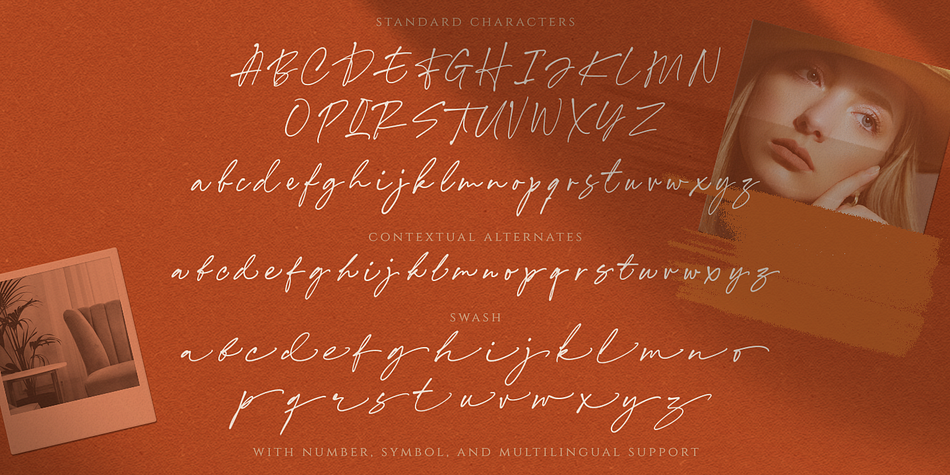 STANDARD CHARACTERS
ABCDEFGHIJKLMN
OPQRSTUVWXYZ
abcdefghijklmnopqrstuvwxyz
CONTEXTUAL ALTERNATES
abcdefghijklmnopqrstuvwxyz
SWASH
abcdefghijklmno
pqrstuvwxyz
WITH NUMBER, SYMBOL, AND MULTILINGUAL SUPPORT